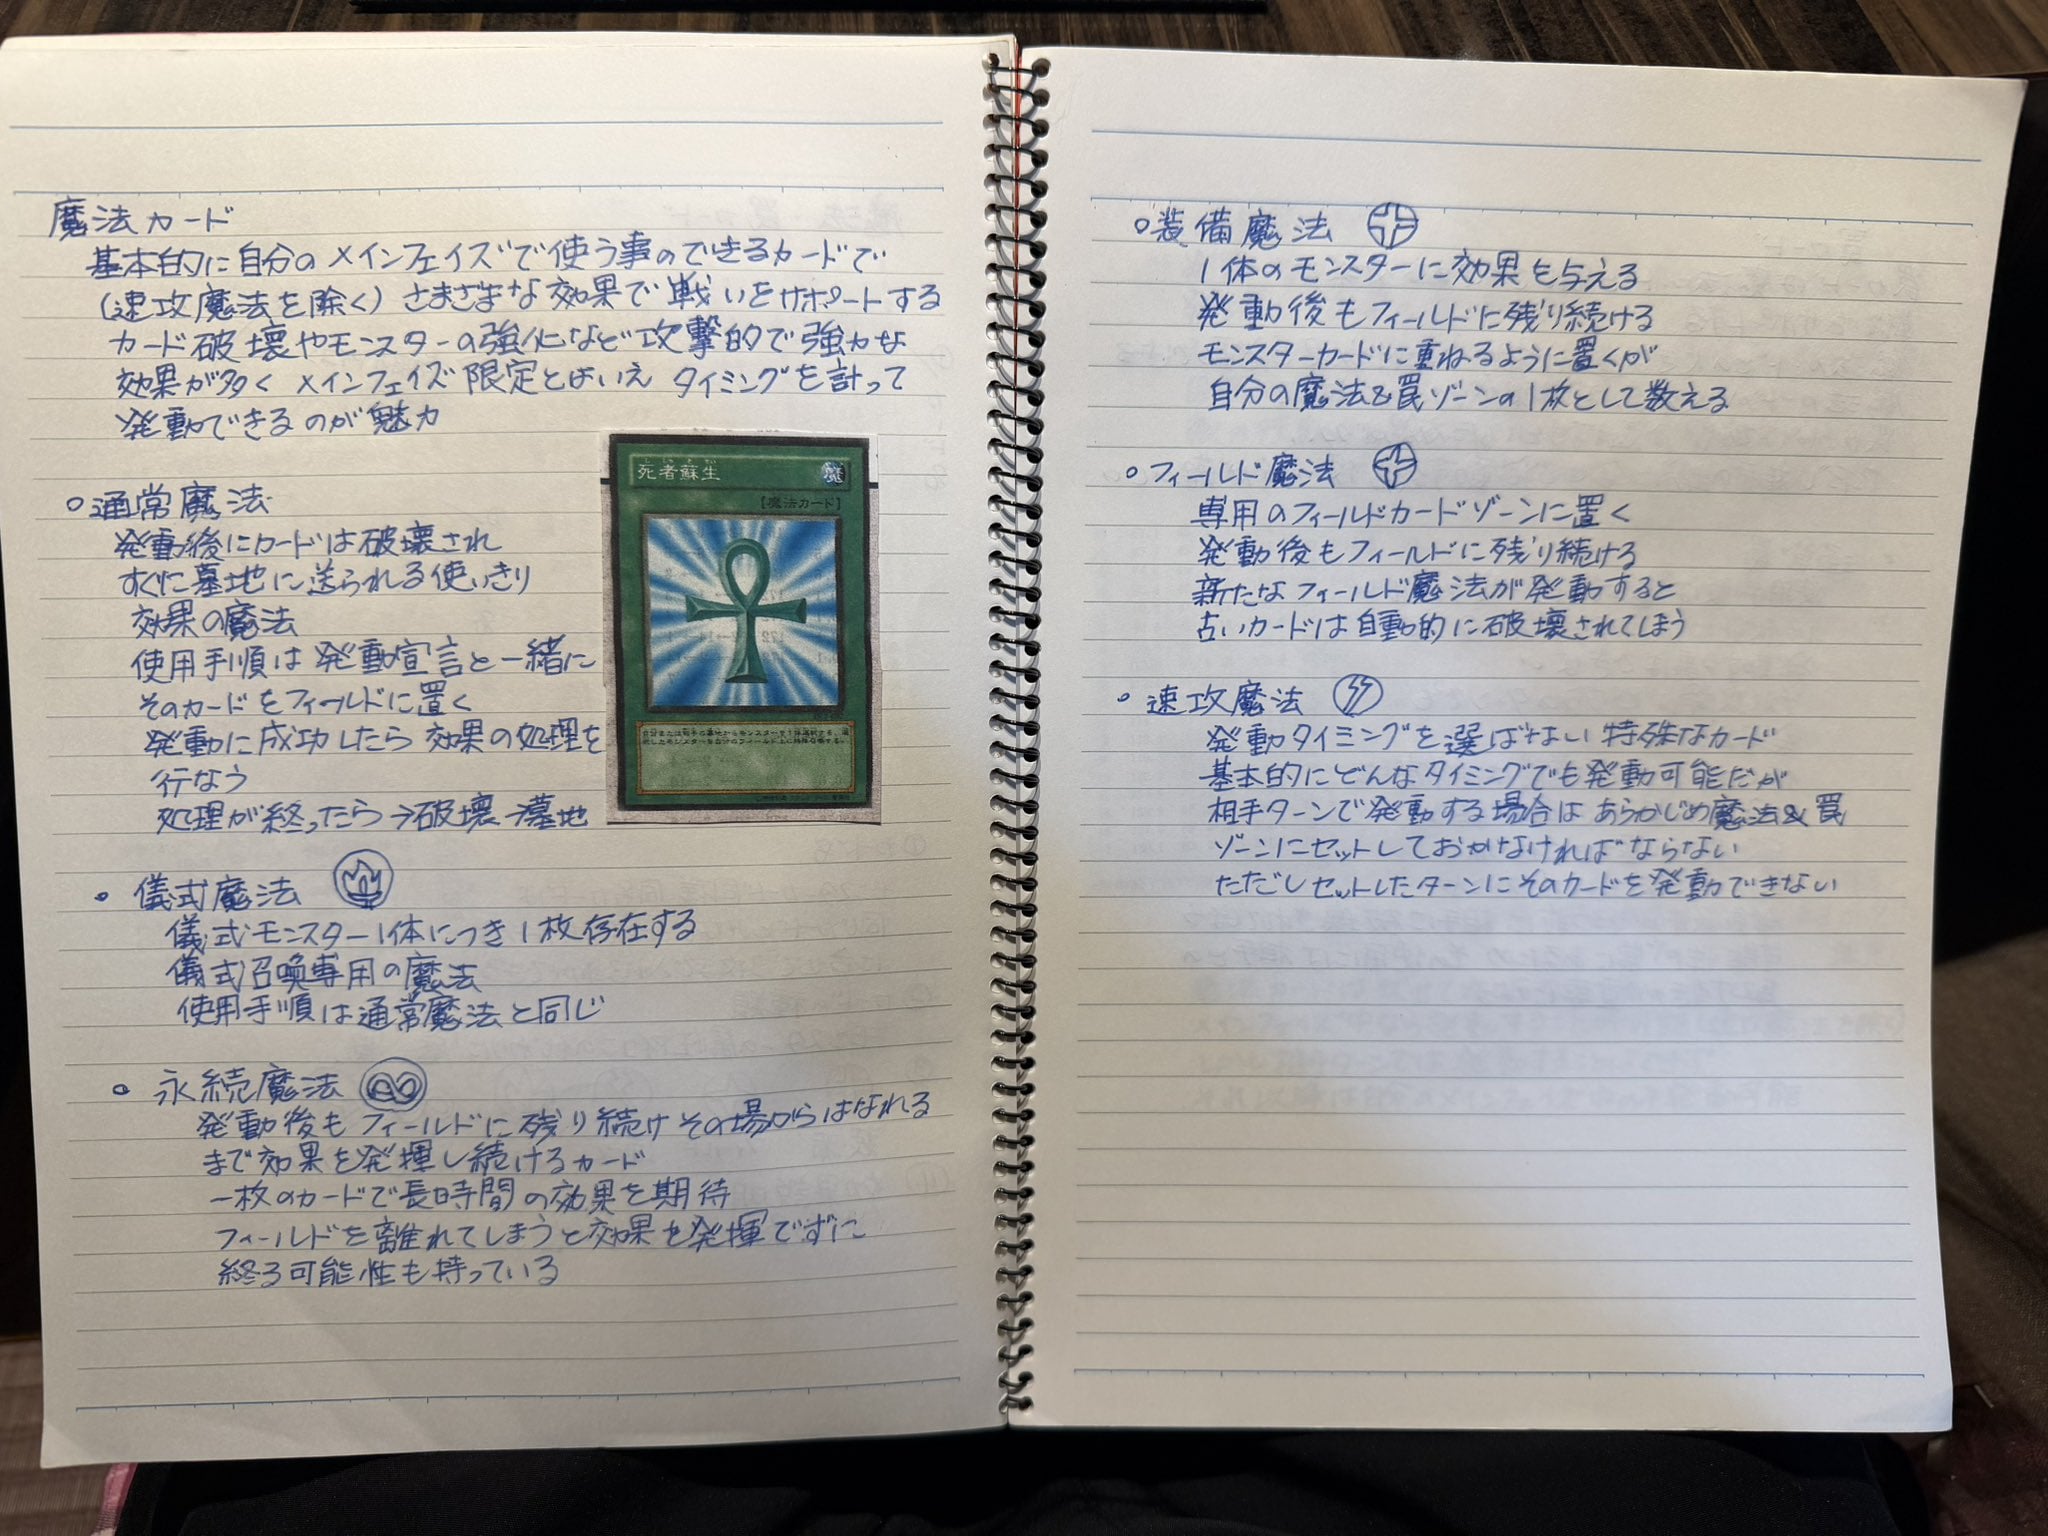 魔法カード
基本的に自分のメインフェイズで使う事のできるカードで
(速攻魔法を除く)さまざまな効果で戦いをサポートする
カード破壊やモンスターの強化など攻撃的で強力な
効果が多く メインフェイズ限定とはいえ タイミングを計って
発動できるのが魅力
○通常魔法
発動後にカードは破壊され
すぐに墓地に送られる使いきり
効果の魔法
使用手順は発動宣言と一緒に
そのカードをフィールドに置く
発動に成功したら 効果の処理を
行なう
処理が終ったら→破壊→墓地
死者蘇生
魔
[魔法カード]
○儀式魔法
儀式モンスター1体につき1枚存在する
儀式召喚専用の魔法
使用手順は通常魔法と同じ
○永続魔法
発動後もフィールドに残り続けその場からはなれる
まで効果を発揮し続けるカード
一枚のカードで長時間の効果を期待
フィールドを離れてしまうと効果を発揮でずに
終る可能性も持っている
○装備魔法
1体のモンスターに効果を与える
発動後もフィールドに残り続ける
モンスターカードに重ねるように置くが
自分の魔法&罠ゾーンの1枚として数える
○フィールド魔法
専用のフィールドカードゾーンに置く
発動後もフィールドに残り続ける
新たなフィールド魔法が発動すると
古いカードは自動的に破壊されてしまう
○速攻魔法
発動タイミングを選ばない特殊なカード
基本的にどんなタイミングでも発動可能だが
相手ターンで発動する場合はあらかじめ魔法&罠
ゾーンにセットしておかなければならない
ただしセットしたターンにそのカードを発動できない